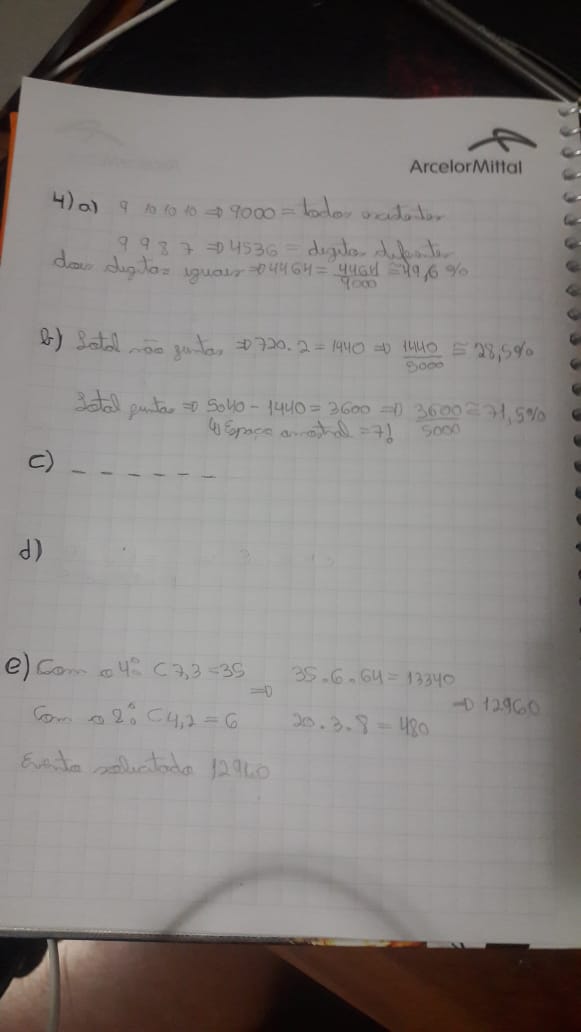 ArcelorMittal
4) a) 9 10 10 10 ⇒ 9000 = todos
9 9 8 7 ⇒ 4536 = digitos diferentes
dois digitos iguais ⇒ 4464 = 4464/9000 ≅ 49,6%
b) Total não juntas ⇒ 720.2 = 1440 ⇒ 1440/5000 ≅ 28,5%
Total juntas ⇒ 5040 - 1440 = 3600 ⇒ 3600/5000 ≅ 71,5%
↳ Espaço amostral = 7!
c) _ _ _ _ _ _
d)
e) Com o 4º C7,3 = 35 ⇒ 35.6.64 = 13340
Com o 2º C4,2 = 6 20.3.8 = 480 ⇒ 12960
Evento solicitado 12960